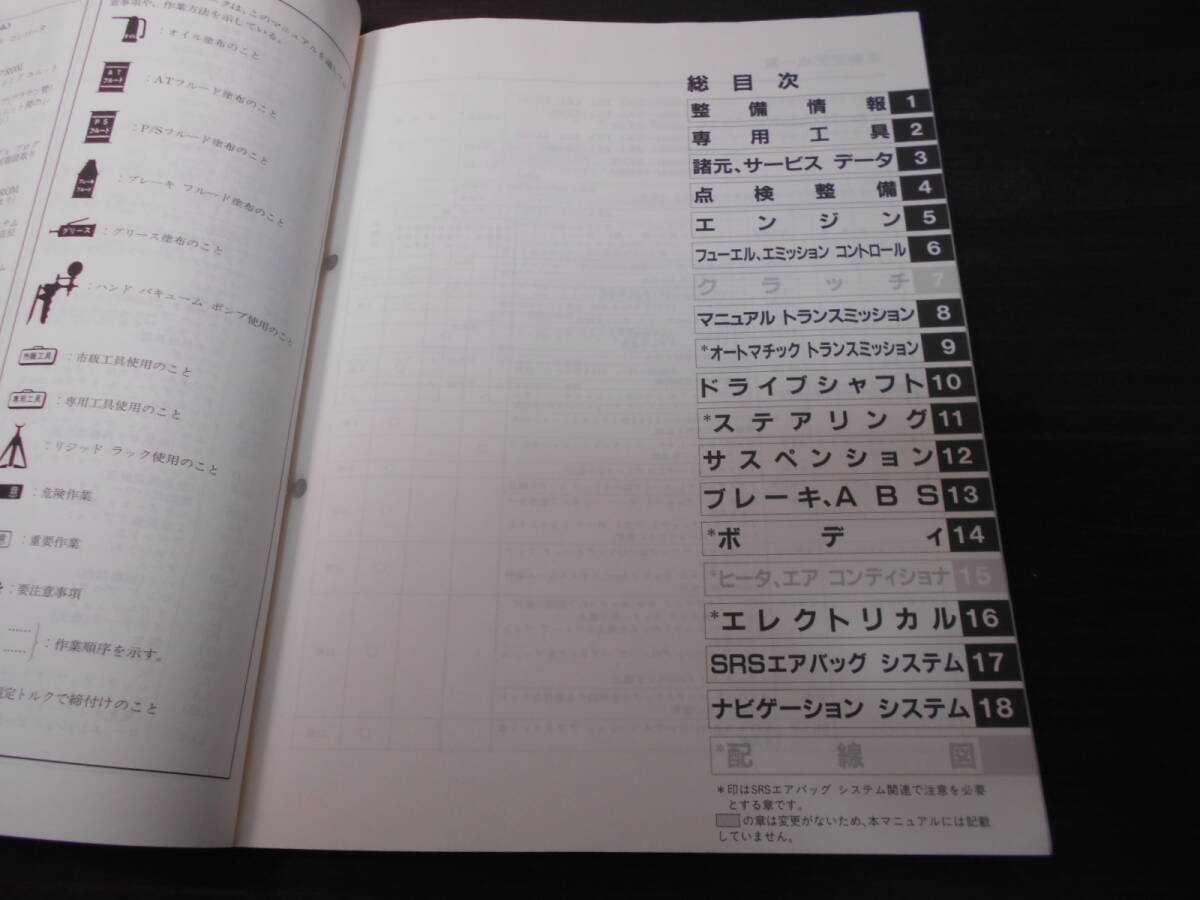 意事項や、作業方法を示している。
オイル
：オイル塗布のこと
AT
フルード
：ATフルード塗布のこと
PS
フルード
：P/Sフルード塗布のこと
ブレーキ
フルード
：ブレーキ フルード塗布のこと
グリース
：グリース塗布のこと
：ハンド バキューム ポンプ使用のこと
市販工具
：市販工具使用のこと
専用工具
：専用工具使用のこと
：リジッド ラック使用のこと
意
：危険作業
：重要作業
：要注意事項
：作業順序を示す。
定トルクで締付けのこと
総目次
整備情報 1
専用工具 2
諸元、サービス データ 3
点検整備 4
エンジン 5
フューエル、エミッション コントロール 6
クラッチ 7
マニュアル トランスミッション 8
*オートマチック トランスミッション 9
ドライブシャフト 10
*ステアリング 11
サスペンション 12
ブレーキ、ABS 13
*ボディ 14
*ヒータ、エア コンディショナ 15
*エレクトリカル 16
SRSエアバッグ システム 17
ナビゲーション システム 18
*配線図
*印はSRSエアバッグ システム関連で注意を必要
とする章です。
の章は変更がないため、本マニュアルには記載
していません。